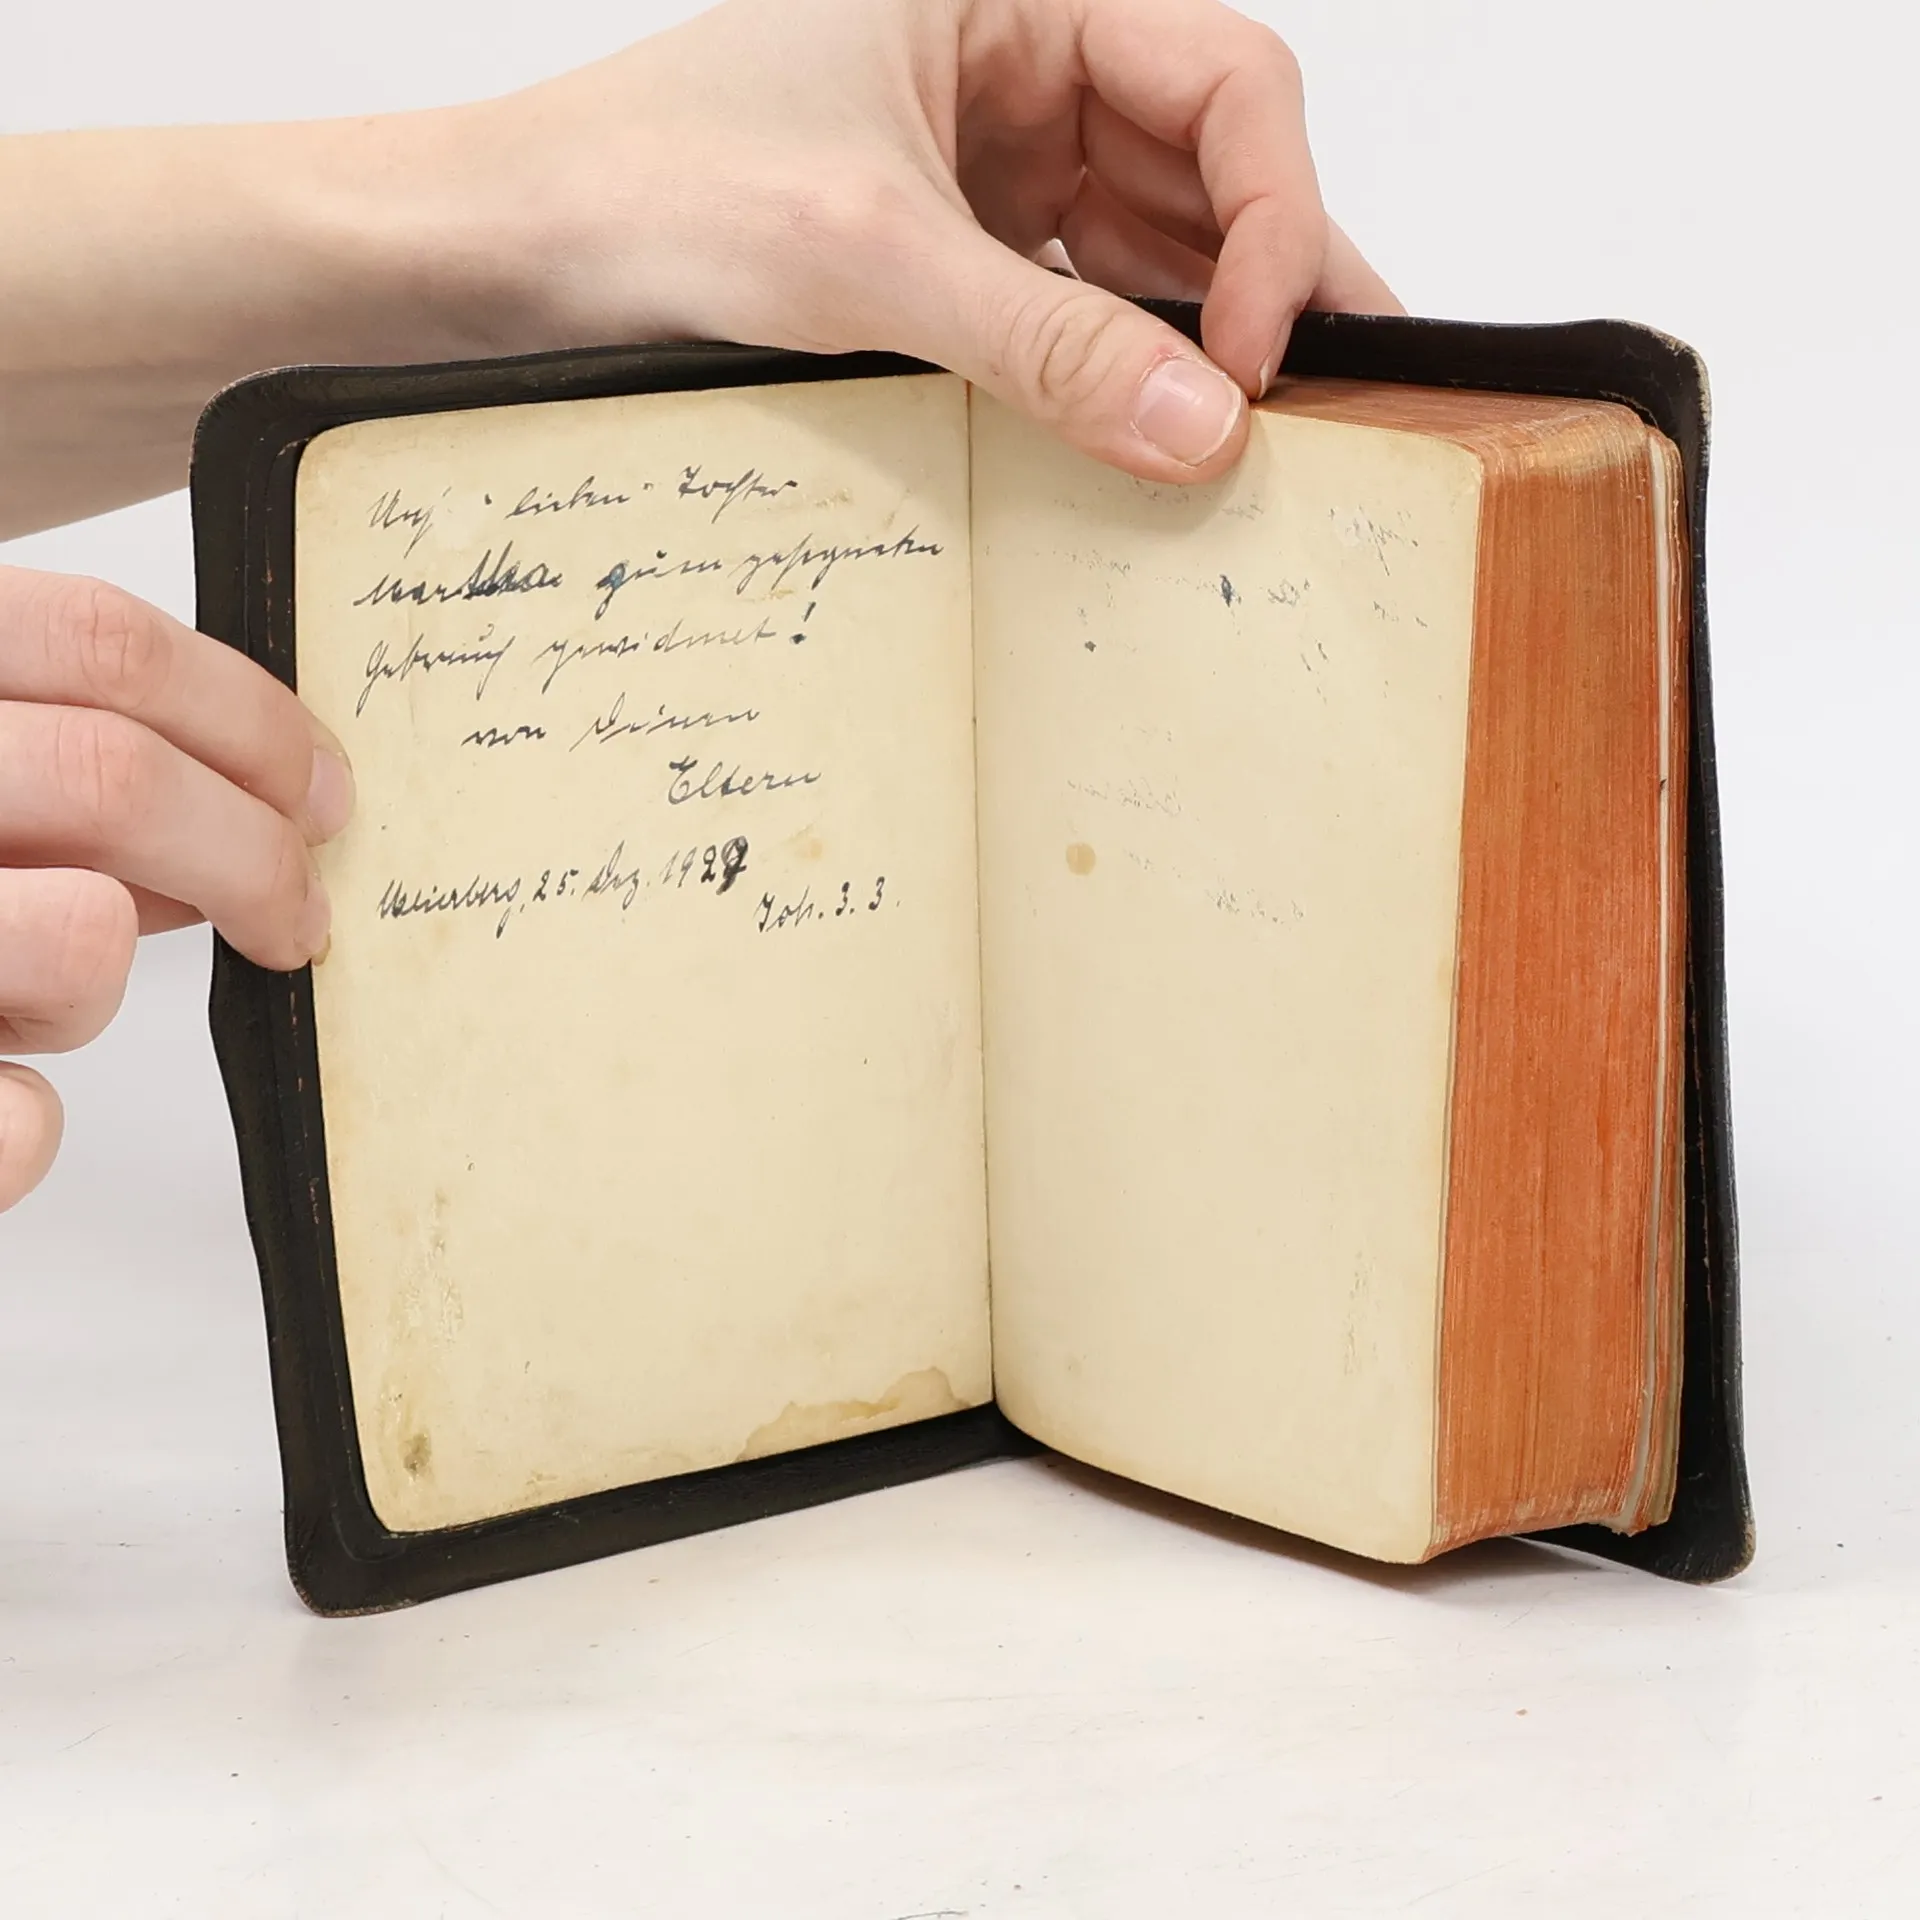 lieben Tochter
Martha zum gesegneten
Gebrauch gewidmet!
von Deinen
Eltern
Meierberg, 25. Dez. 1927
Joh. 3. 3.